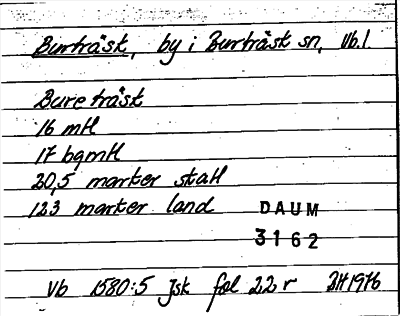 Burträsk, by i Burträsk sn, Vb.l.
Bure träsk
16 mtl
17 bgmtl
20,5 marker skatt
123 marker land
DAUM
3162
Vb 1580:5 Jsk fol 22 r BH 1976